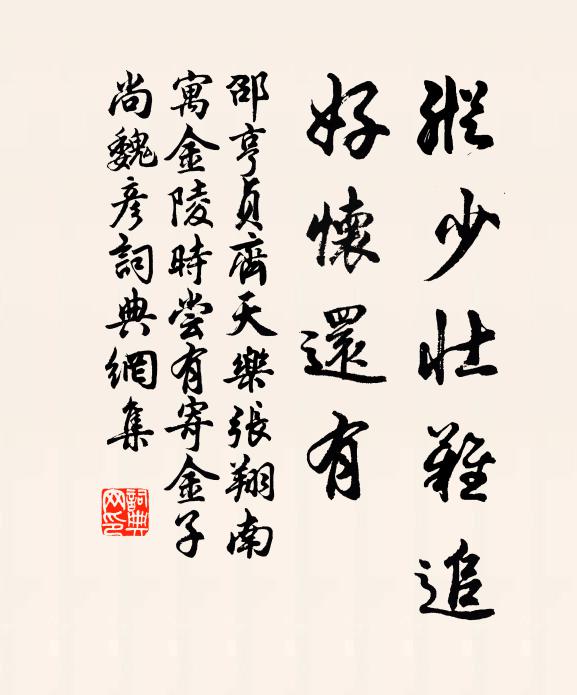 縱少壯難追
好懷還有
邵亨貞齊天樂張翔南
寓金陵時嘗有寄金子
尚魏彥詞典網集
詞典
网印